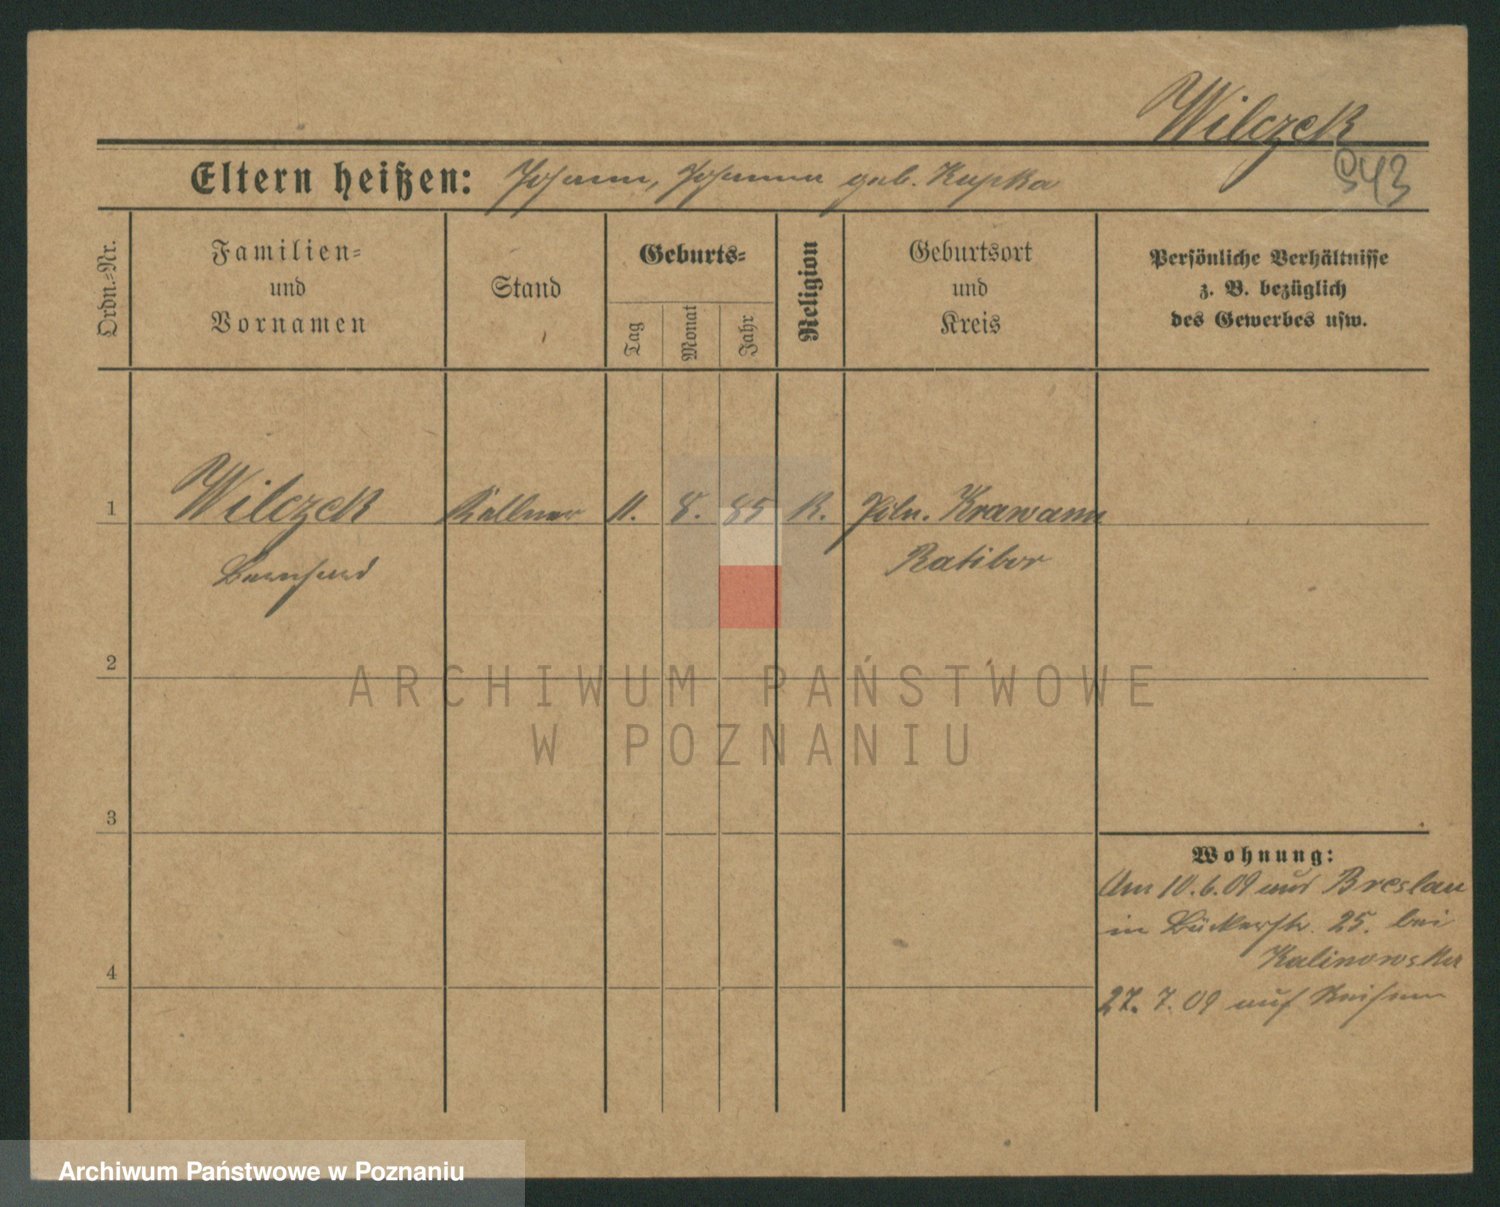 Wilczek
943
Eltern heißen: Johann, Johanna geb. Kupka
Ordn.-Nr.
Familien=
und
Vornamen
Stand
Geburts=
Tag
Monat
Jahr
Religion
Geburtsort
und
Kreis
Persönliche Verhältnisse
z. B. bezüglich
des Gewerbes usw.
1
Wilczek Kellner 11. 8. 85 K. Poln. Krawarn
Bernhard Ratibor
2
ARCHIWUM PAŃSTWOWE
W POZNANIU
3
Wohnung:
Am 10.6.09 aus Breslau
in Bäckerstr. 25. bei
Kalinowska
4
27. 7. 09 auf Reisen
Archiwum Państwowe w Poznaniu